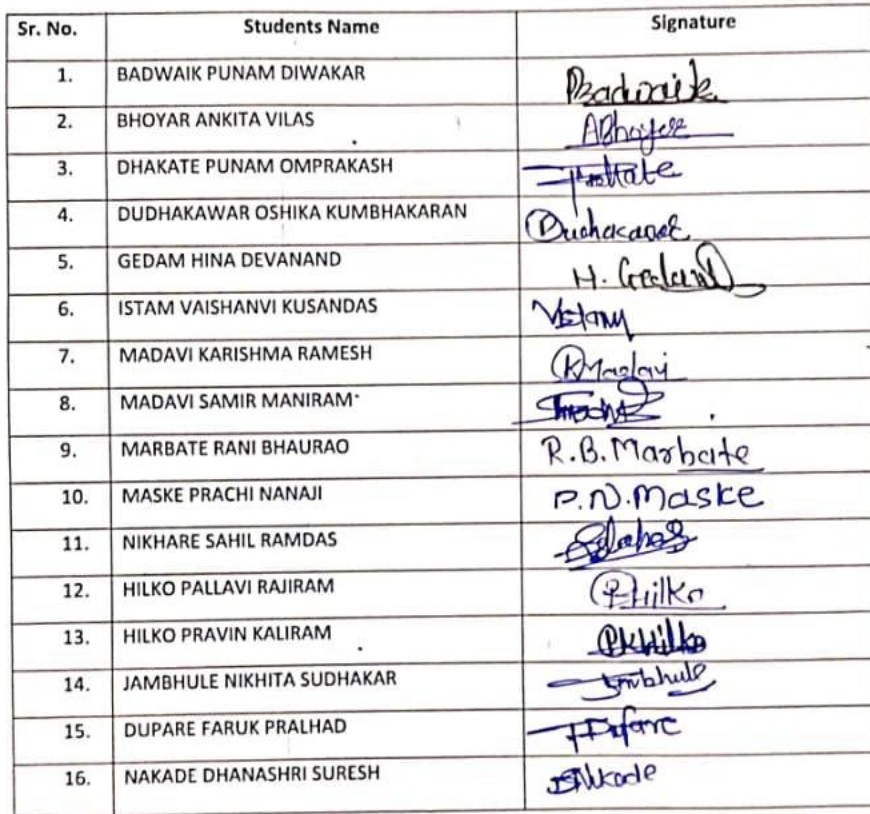 Sr. No. Students Name Signature
1. BADWAIK PUNAM DIWAKAR PBadwaik
2. BHOYAR ANKITA VILAS ABhoyar
3. DHAKATE PUNAM OMPRAKASH
4. DUDHAKAWAR OSHIKA KUMBHAKARAN
5. GEDAM HINA DEVANAND H. Gedam
6. ISTAM VAISHANVI KUSANDAS
7. MADAVI KARISHMA RAMESH KMadavi
8. MADAVI SAMIR MANIRAM
9. MARBATE RANI BHAURAO R.B.Marbate
10. MASKE PRACHI NANAJI P.N.Maske
11. NIKHARE SAHIL RAMDAS
12. HILKO PALLAVI RAJIRAM P Hilko
13. HILKO PRAVIN KALIRAM PKHilko
14. JAMBHULE NIKHITA SUDHAKAR
15. DUPARE FARUK PRALHAD
16. NAKADE DHANASHRI SURESH